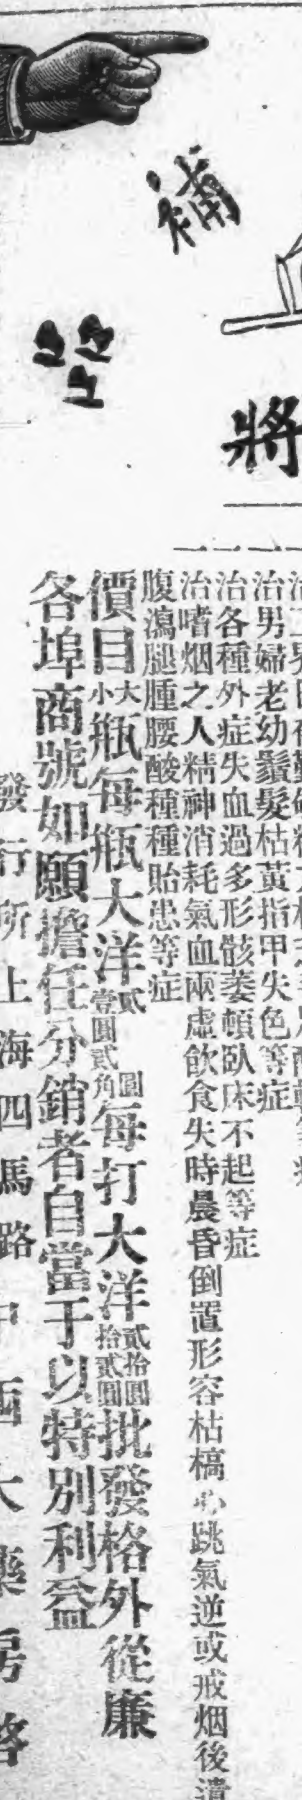 補
將
一治男婦老幼鬚髮枯黃指甲失色等症
一治各種外症失血過多形骸萎頓臥床不起等症
一治嗜烟之人精神消耗氣血兩虛飲食失時晨昏倒置形容枯槁心跳氣逆或戒烟後潰
腹瀉腿腫腰酸種種貽患等症
價目大小瓶每瓶大洋貳圓壹圓貳角每打大洋貳拾圓拾貳圓批發格外從廉
各埠商號如願擔任分銷者自當予以特別利益
發行所上海四馬路中西大藥房啓